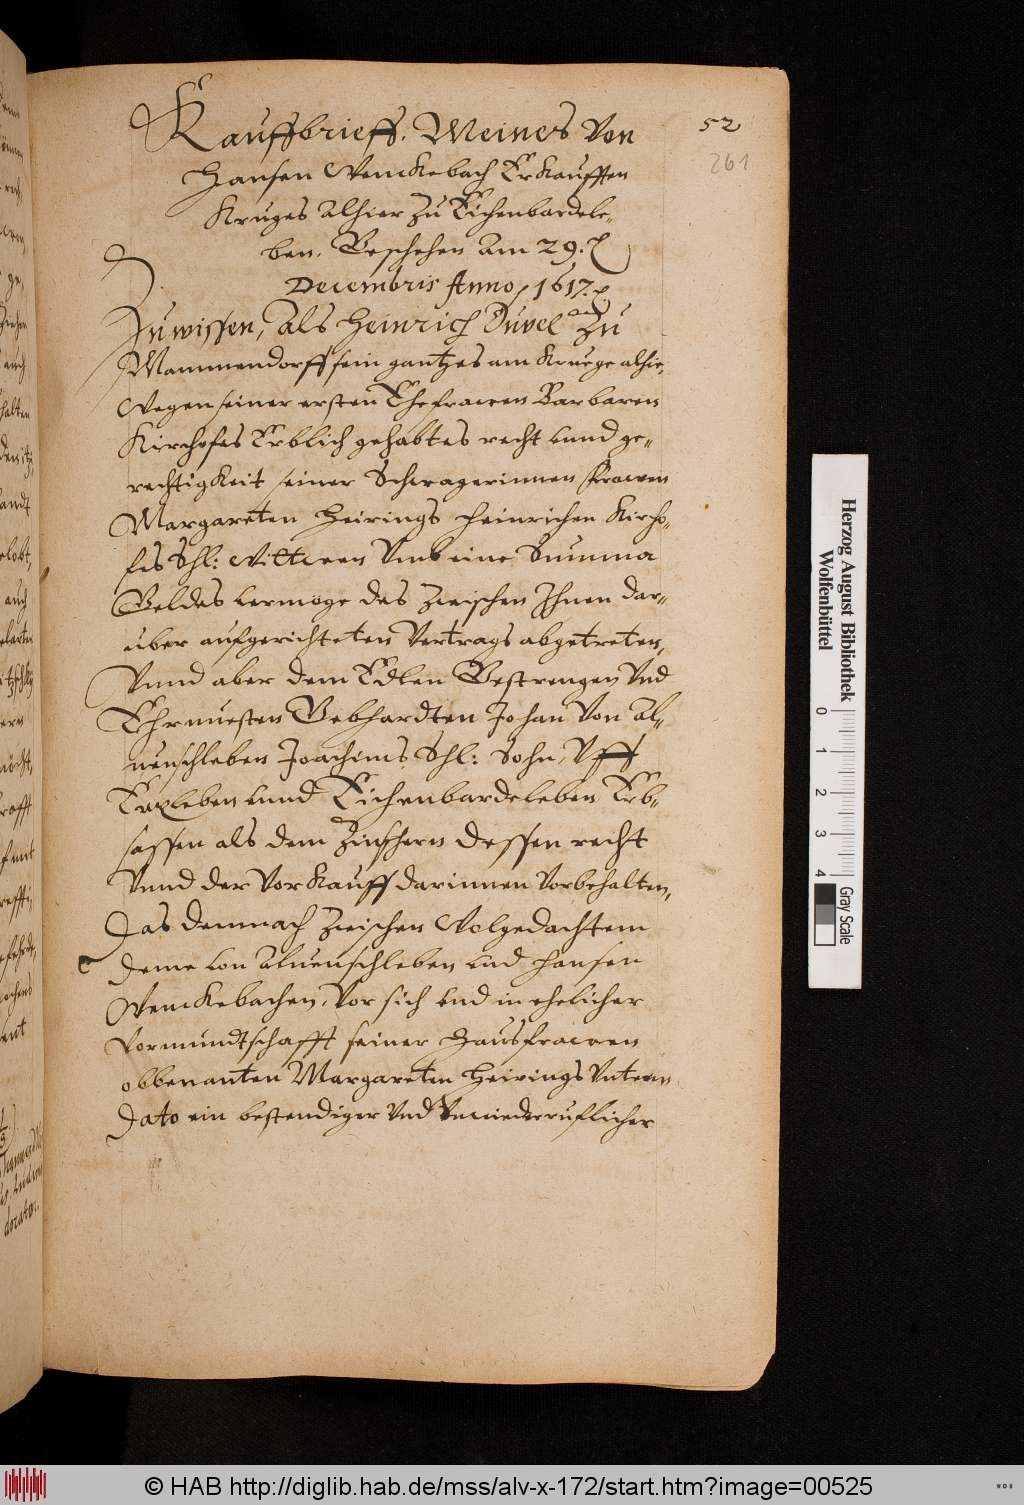 52
261
Kauffbrieff. Meines Von
Hansen Wenckebach Erkaufften
Kruges Alhier zu Eichenbardele-
ben. Geschehen Am 29.
Decembris Anno, 1617.
Zu wissen, Als Heinrich Duvel zu
Mammendorff sein gantzes am Kruege alhie,
Wegen seiner ersten Ehefrawen Barbaren
Kirchofes Erblich gehabtes recht vnnd ge-
rechtigkeit seiner Schwagerinnen Frawen
Margareten Heirings Heinrichen Kircho-
fes Shl: Wittwen Vmb eine Summa
Geldes vermöge des zwischen Ihnen dar-
über aufgerichteten Vertrags abgetreten,
Vnnd aber dem Edlen Gestrengen Vnd
Ehrnuesten Gebhardten Johan Von Al-
uenschleben Joachims Shl: Sohn, Vff
Erxleben vnnd Eichenbardeleben Erb-
sassen als dem Zinshern dessen recht
Vnnd der Vorkauff darinnen Vorbehalten,
Das demnach zwischen Wolgedachtem
deme von Aluenschleben vnd Hansen
Wenckebachen, Vor sich vnd in ehelicher
Vormundtschafft seiner Hausfrawen
obbenanten Margareten Heirings Vnterm
Dato ein bestendiger Vnd Vnwiederruflicher
Herzog August Bibliothek
Wolfenbüttel
0 1 2 3 4
Gray Scale
© HAB http://diglib.hab.de/mss/alv-x-172/start.htm?image=00525